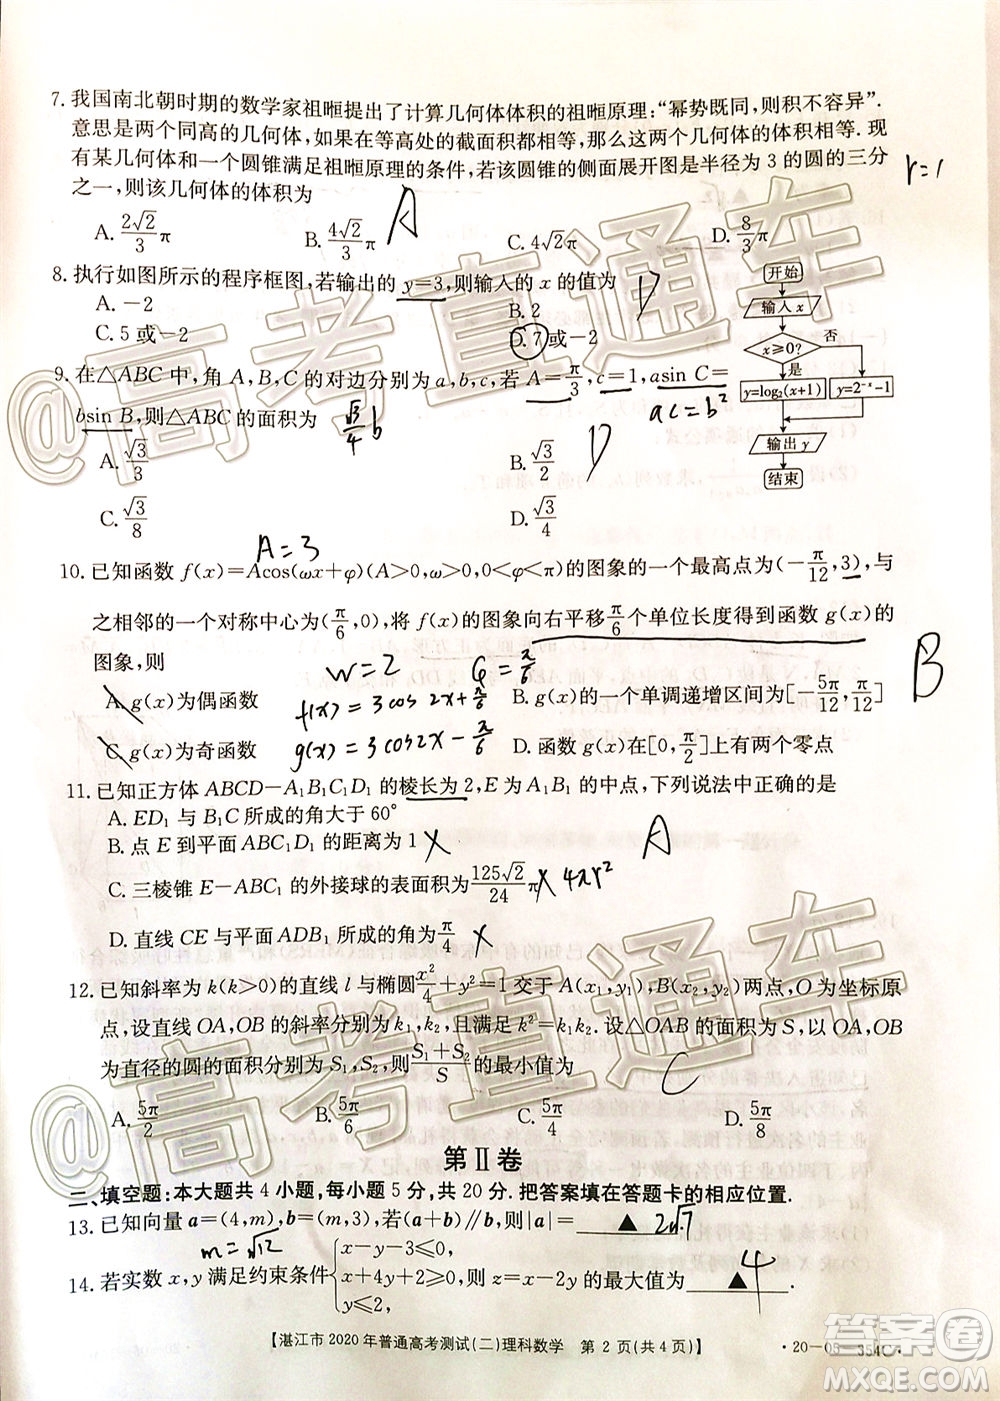 7. 我国南北朝时期的数学家祖暅提出了计算几何体体积的祖暅原理:“幂势既同,则积不容异”.
意思是两个同高的几何体,如果在等高处的截面积都相等,那么这两个几何体的体积相等. 现
有某几何体和一个圆锥满足祖暅原理的条件,若该圆锥的侧面展开图是半径为 3 的圆的三分
之一,则该几何体的体积为
r=1
A
A. 2√2/3 π  B. 4√2/3 π  C. 4√2π  D. 8/3 π
8. 执行如图所示的程序框图,若输出的 y=3,则输入的 x 的值为
D
A. −2  B. 2
C. 5 或−2  D. 7 或−2
开始
输入 x
x≥0?
否
是
y=log₂(x+1)
y=2⁻ˣ−1
输出 y
结束
9. 在△ABC 中,角 A,B,C 的对边分别为 a,b,c,若 A=π/3,c=1,asin C=
bsin B,则△ABC 的面积为
√3/4 b
ac=b²
D
A. √3/3  B. √3/2
C. √3/8  D. √3/4
A=3
10. 已知函数 f(x)=Acos(ωx+φ)(A>0,ω>0,0<φ<π)的图象的一个最高点为(−π/12,3),与
之相邻的一个对称中心为(π/6,0),将 f(x)的图象向右平移π/6个单位长度得到函数 g(x)的
图象,则
w=2
φ=π/6
B
A. g(x)为偶函数  B. g(x)的一个单调递增区间为[−5π/12,π/12]
f(x)=3cos2x+π/6
C. g(x)为奇函数  D. 函数 g(x)在[0,π/2]上有两个零点
g(x)=3cos2x−π/6
11. 已知正方体 ABCD−A₁B₁C₁D₁ 的棱长为 2,E 为 A₁B₁ 的中点,下列说法中正确的是
A. ED₁ 与 B₁C 所成的角大于 60°
B. 点 E 到平面 ABC₁D₁ 的距离为 1
A
C. 三棱锥 E−ABC₁ 的外接球的表面积为125√2/24 π
4πr²
D. 直线 CE 与平面 ADB₁ 所成的角为π/4
12. 已知斜率为 k(k>0)的直线 l 与椭圆x²/4+y²=1 交于 A(x₁,y₁),B(x₂,y₂)两点,O 为坐标原
点,设直线 OA,OB 的斜率分别为 k₁,k₂,且满足 k²=k₁k₂. 设△OAB 的面积为 S,以 OA,OB
为直径的圆的面积分别为 S₁,S₂,则(S₁+S₂)/S的最小值为
C
A. 5π/2  B. 5π/6  C. 5π/4  D. 5π/8
第Ⅱ卷
二、填空题:本大题共 4 小题,每小题 5 分,共 20 分. 把答案填在答题卡的相应位置.
13. 已知向量 a=(4,m),b=(m,3),若(a+b)∥b,则|a|= ▲
2√7
m=√12
14. 若实数 x,y 满足约束条件{x−y−3≤0, x+2y≥0, y≤2,则 z=x−2y 的最大值为 ▲
4
【湛江市 2020 年普通高考测试(二)理科数学  第 2 页(共 4 页)】
·20−05−354C·
@高考直通车
@高考直通车
答案圈
MXQE.COM